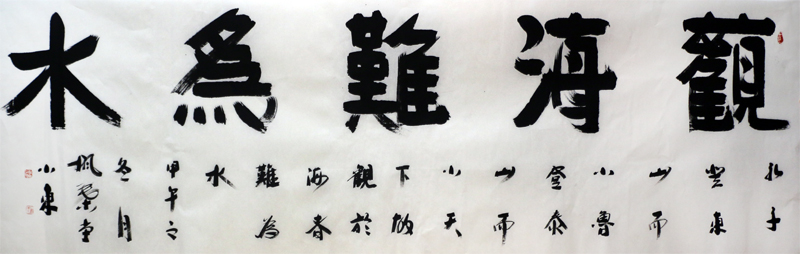 觀海難為水
孔子
登東
山而
小魯
登泰
山而
小天
下故
觀於
海者
難為
水
甲午之
冬月
小東